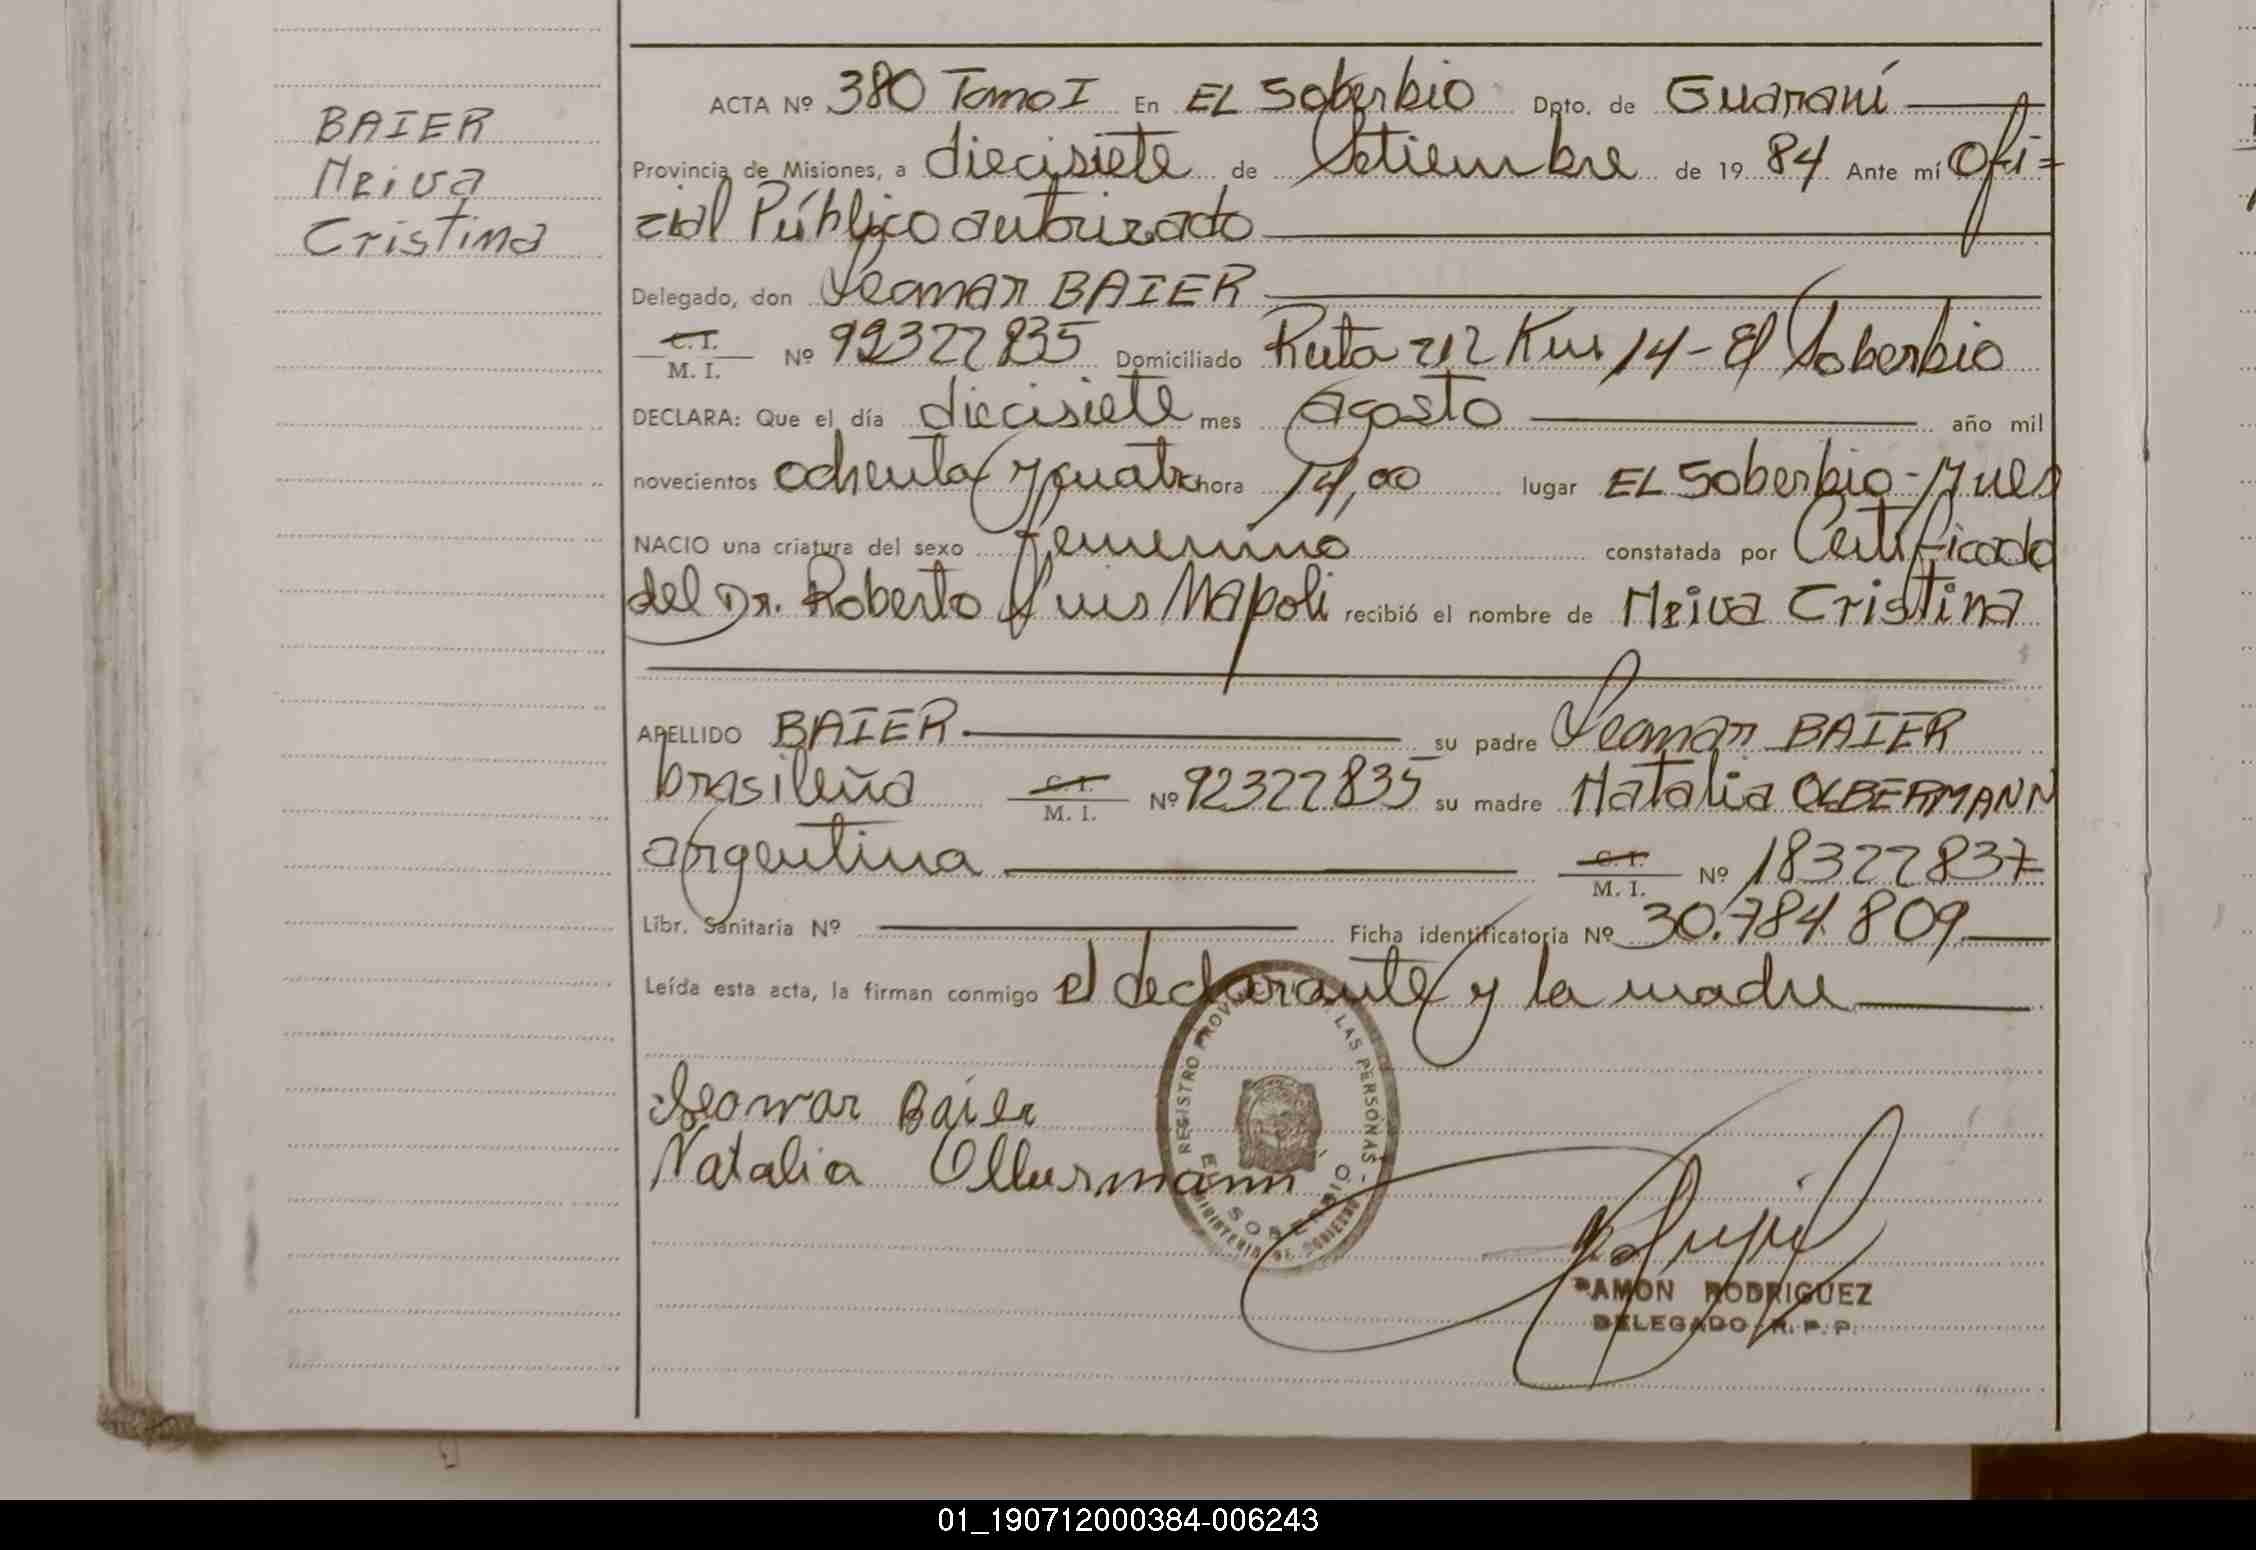 BAIER
Neiva
Cristina
ACTA Nº 380 Tomo I En EL Soberbio Dpto. de Guaraní
Provincia de Misiones, a diecisiete de Setiembre de 19 84 Ante mí Ofi=
cial Público autorizado
Delegado, don Leomar BAIER
C. I. / M. I. Nº 92322835 Domiciliado Ruta 212 Km 14 - El Soberbio
DECLARA: Que el día diecisiete mes agosto año mil
novecientos ochenta y cuatro hora 14,00 lugar EL Soberbio -
NACIO una criatura del sexo femenino constatada por Certificado
del Dr. Roberto Luis Napoli recibió el nombre de Neiva Cristina
APELLIDO BAIER su padre Leomar BAIER
brasileña C. I. / M. I. Nº 92322835 su madre Natalia OLBERMANN
argentina C. I. / M. I. Nº 18322837
Libr. Sanitaria Nº Ficha identificatoria Nº 30.784.809
Leída esta acta, la firman conmigo el declarante y la madre
Leomar Baier
Natalia Olbermann
REGISTRO PROVINCIAL DE LAS PERSONAS -
EL SOBERBIO
MINISTERIO DE GOBIERNO
RAMON RODRIGUEZ
DELEGADO R. P. P.
01_190712000384-006243